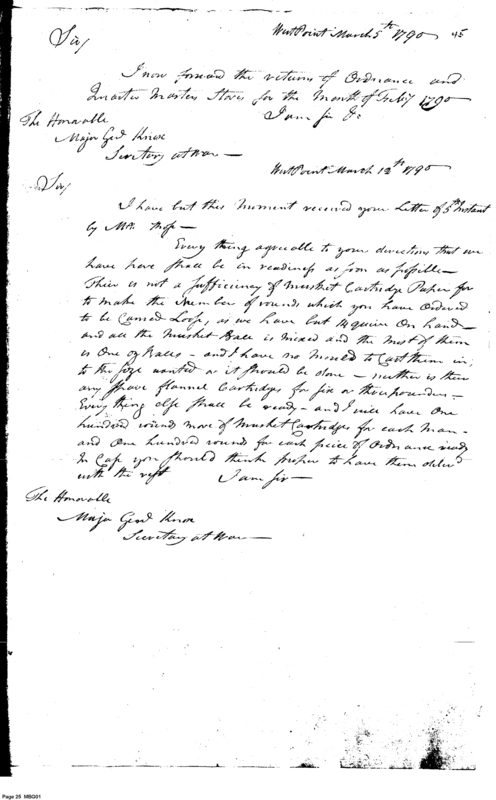 West Point March 5th 1790 45
Sir/
I now forward the returns of Ordnance and
Quarter Masters Stores for the Month of Feby 1790
I am Sir &c
The Honorable
Major Genl Knox
Secretary at War —
West Point March 12th 1790
Sir/
I have but this Moment received your Letter of 5th Instant
by Mr. —
Every thing agreeable to your directions that we
have here shall be in readiness as soon as possible —
Their is not a sufficiency of Musket Cartridge Paper for
to make the Number of rounds which you have Ordered
to be Carried Loose, as we have but quire On hand
and all the Musket Ball is Mixed and the Most of them
is One Oz Balls — and I have no Mould to Cast them in,
to the size wanted or it should be done — neither is their
any spare flannel Cartridges for six or three pounders —
Every thing else shall be ready — and I will have One
hundred round more of Musket Cartridges for each Man —
and One hundred rounds for each peice of Ordnance ready
In Case you should think proper to have them
with the rest I am Sir —
The Honorable
Major Genl Knox
Secretary at War —
Page 25 MBG01